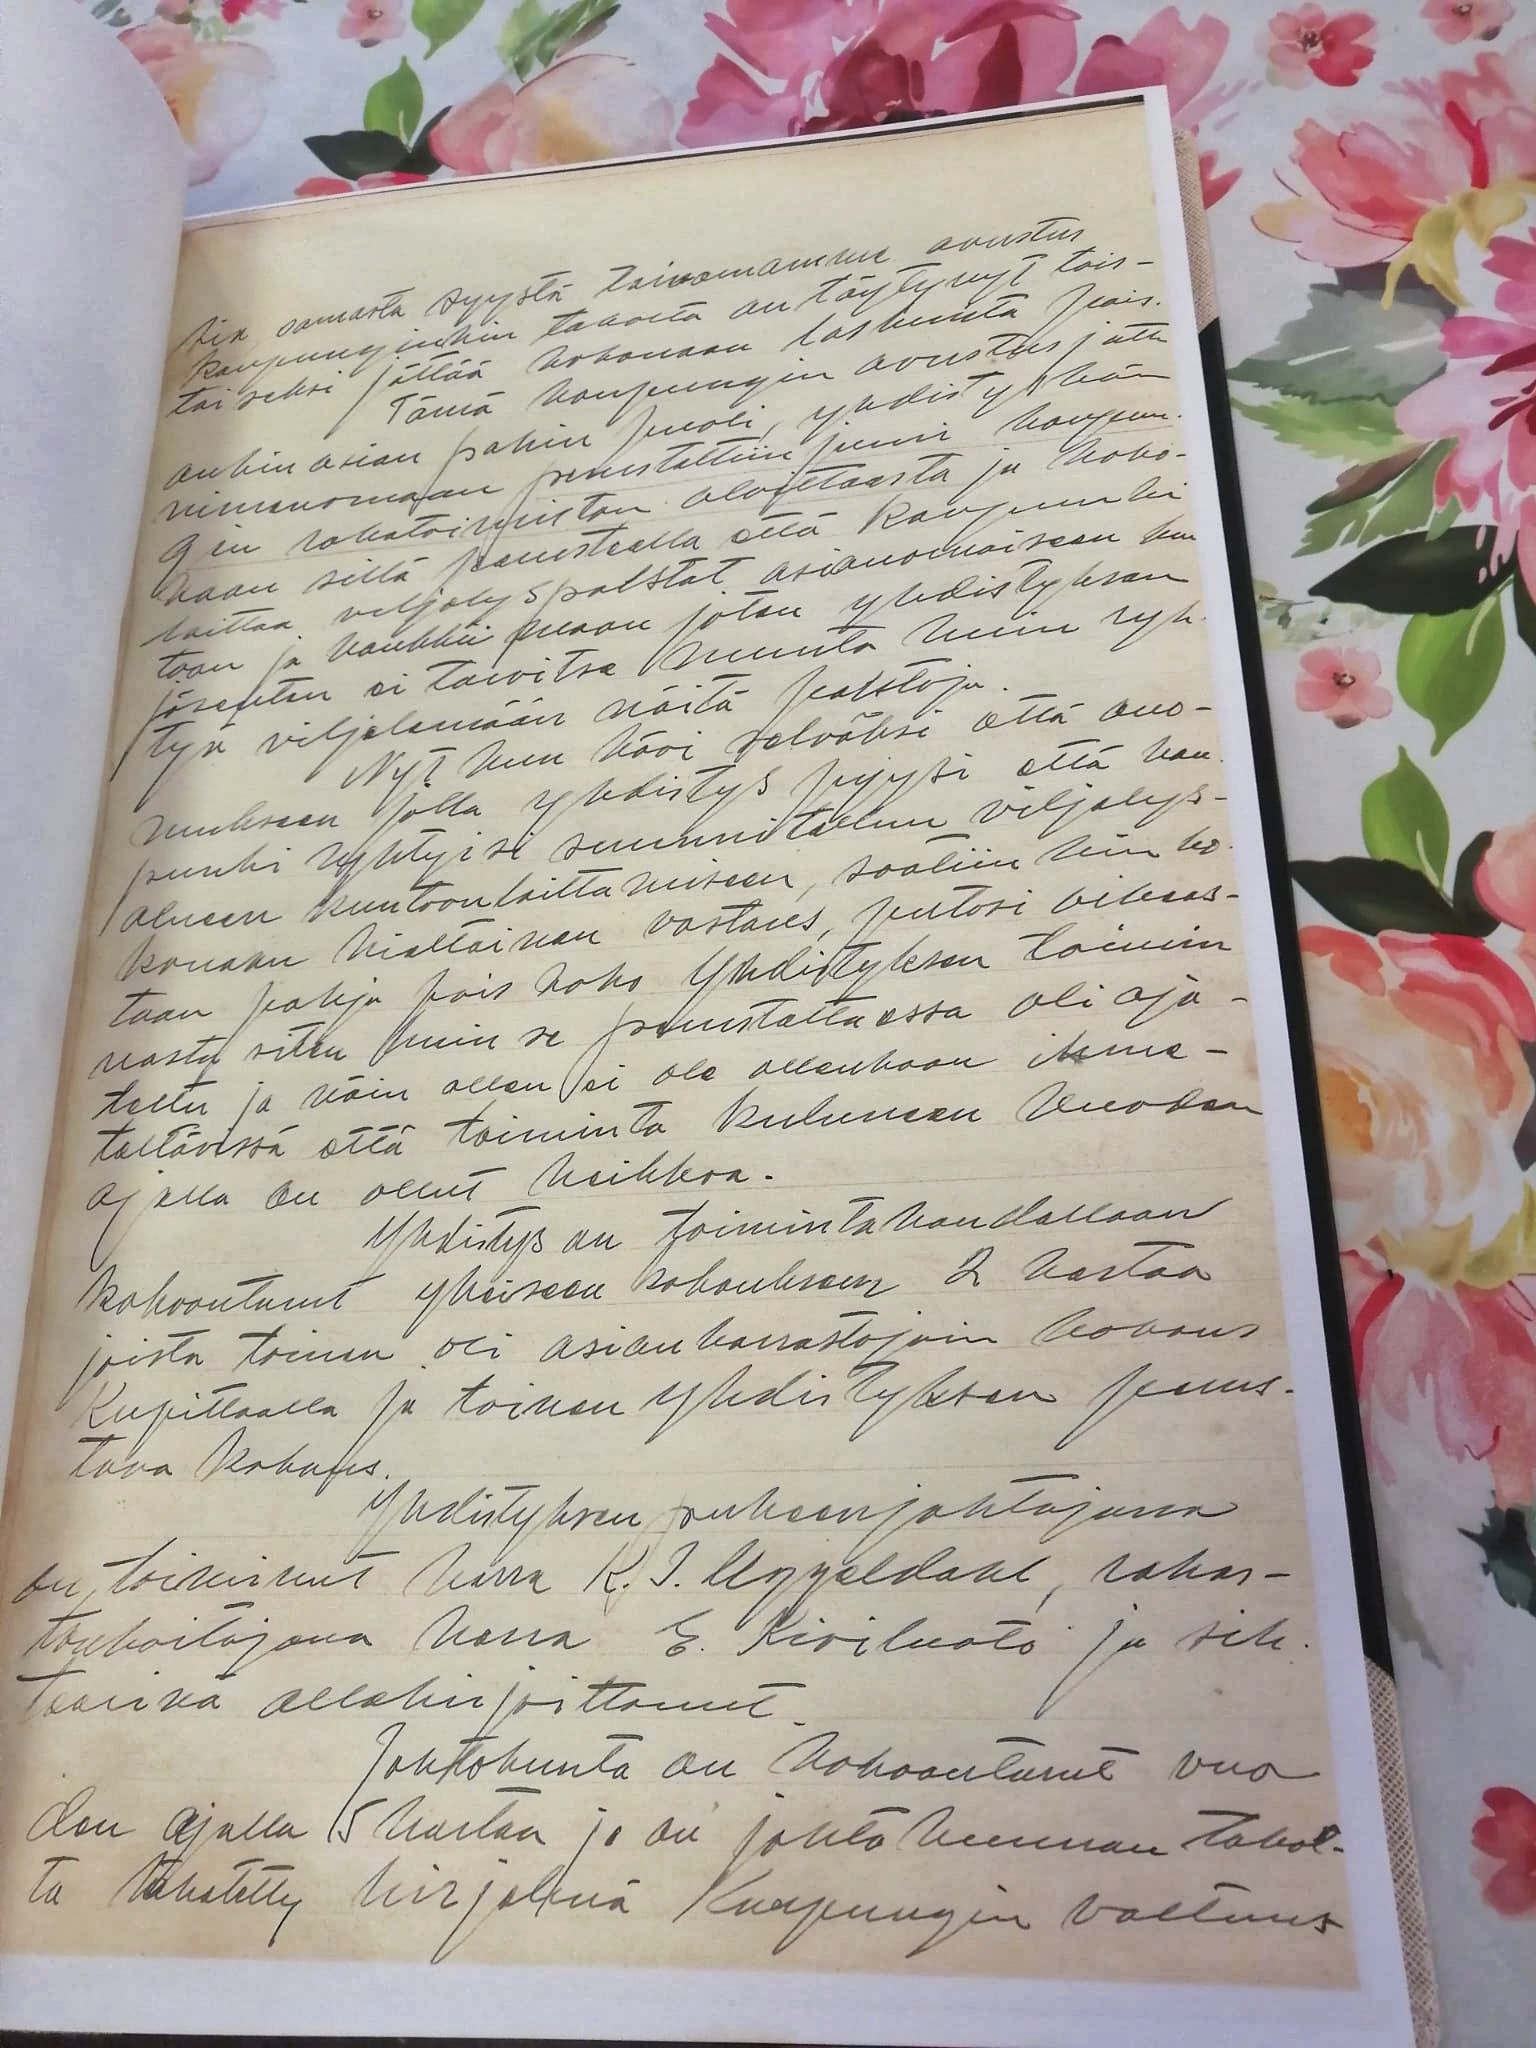 samasta syystä toivomamme avustus
kaupunginkin taholta on täytynyt tois-
taiseksi jättää kokonaan laskuista pois.
Tämä kaupungin avustus jutt
onkin asian pahin puoli, yhdistyshän
nimenomaan perustettiin juuri kaupun-
gin rahatoimiston aloitteesta ja koko-
naan sillä perusteella että kaupunki
laittaa viljelyspalstat asianomaiseen kun
toon ja hankkii maan joten yhdistyksen
jäsenten ei tarvitse muuta kuin ryh-
tyä viljelemään näitä palstoja.
Nyt kun kävi selväksi että ano-
mukseen jolla yhdistys pyysi että kau-
punki ryhtyisi suunnitellun viljelys-
alueen kuntoonlaittamiseen, saatiin niin ko-
konaan kieltäinen vastaus, putosi oikeas-
taan pohja pois koko Yhdistyksen toimin
nasta siten kuin se perustettaessa oli aja-
teltu ja näin ollen ei ole ollenkaan ihme-
teltävissä että toiminta kuluneen vuoden
ajalla on ollut heikkoa.
Yhdistys on toimintakaudellaan
kokoontunut yhteiseen kokoukseen 2 kertaa
joista toinen oli asianharrastajain kokous
Kupittaalla ja toinen yhdistyksen perus-
tava kokous.
Yhdistyksen puheenjohtajana
on toiminut herra K. J. rahas-
tonhoitajana herra E. Kiviluoto ja sih-
teerinä allekirjoittanut.
Johtokunta on kokoontunut vuo
den ajalla 5 kertaa ja on johtokunnan tahol-
ta lähetetty kirjelmä Kaupungin valtuus